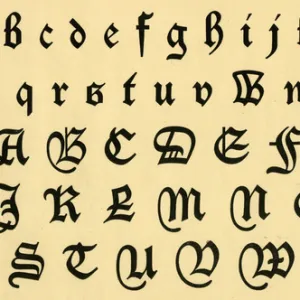 b c d e f g h i j
q r s t u v w
A B C D E F
J K L M N
S T U V W